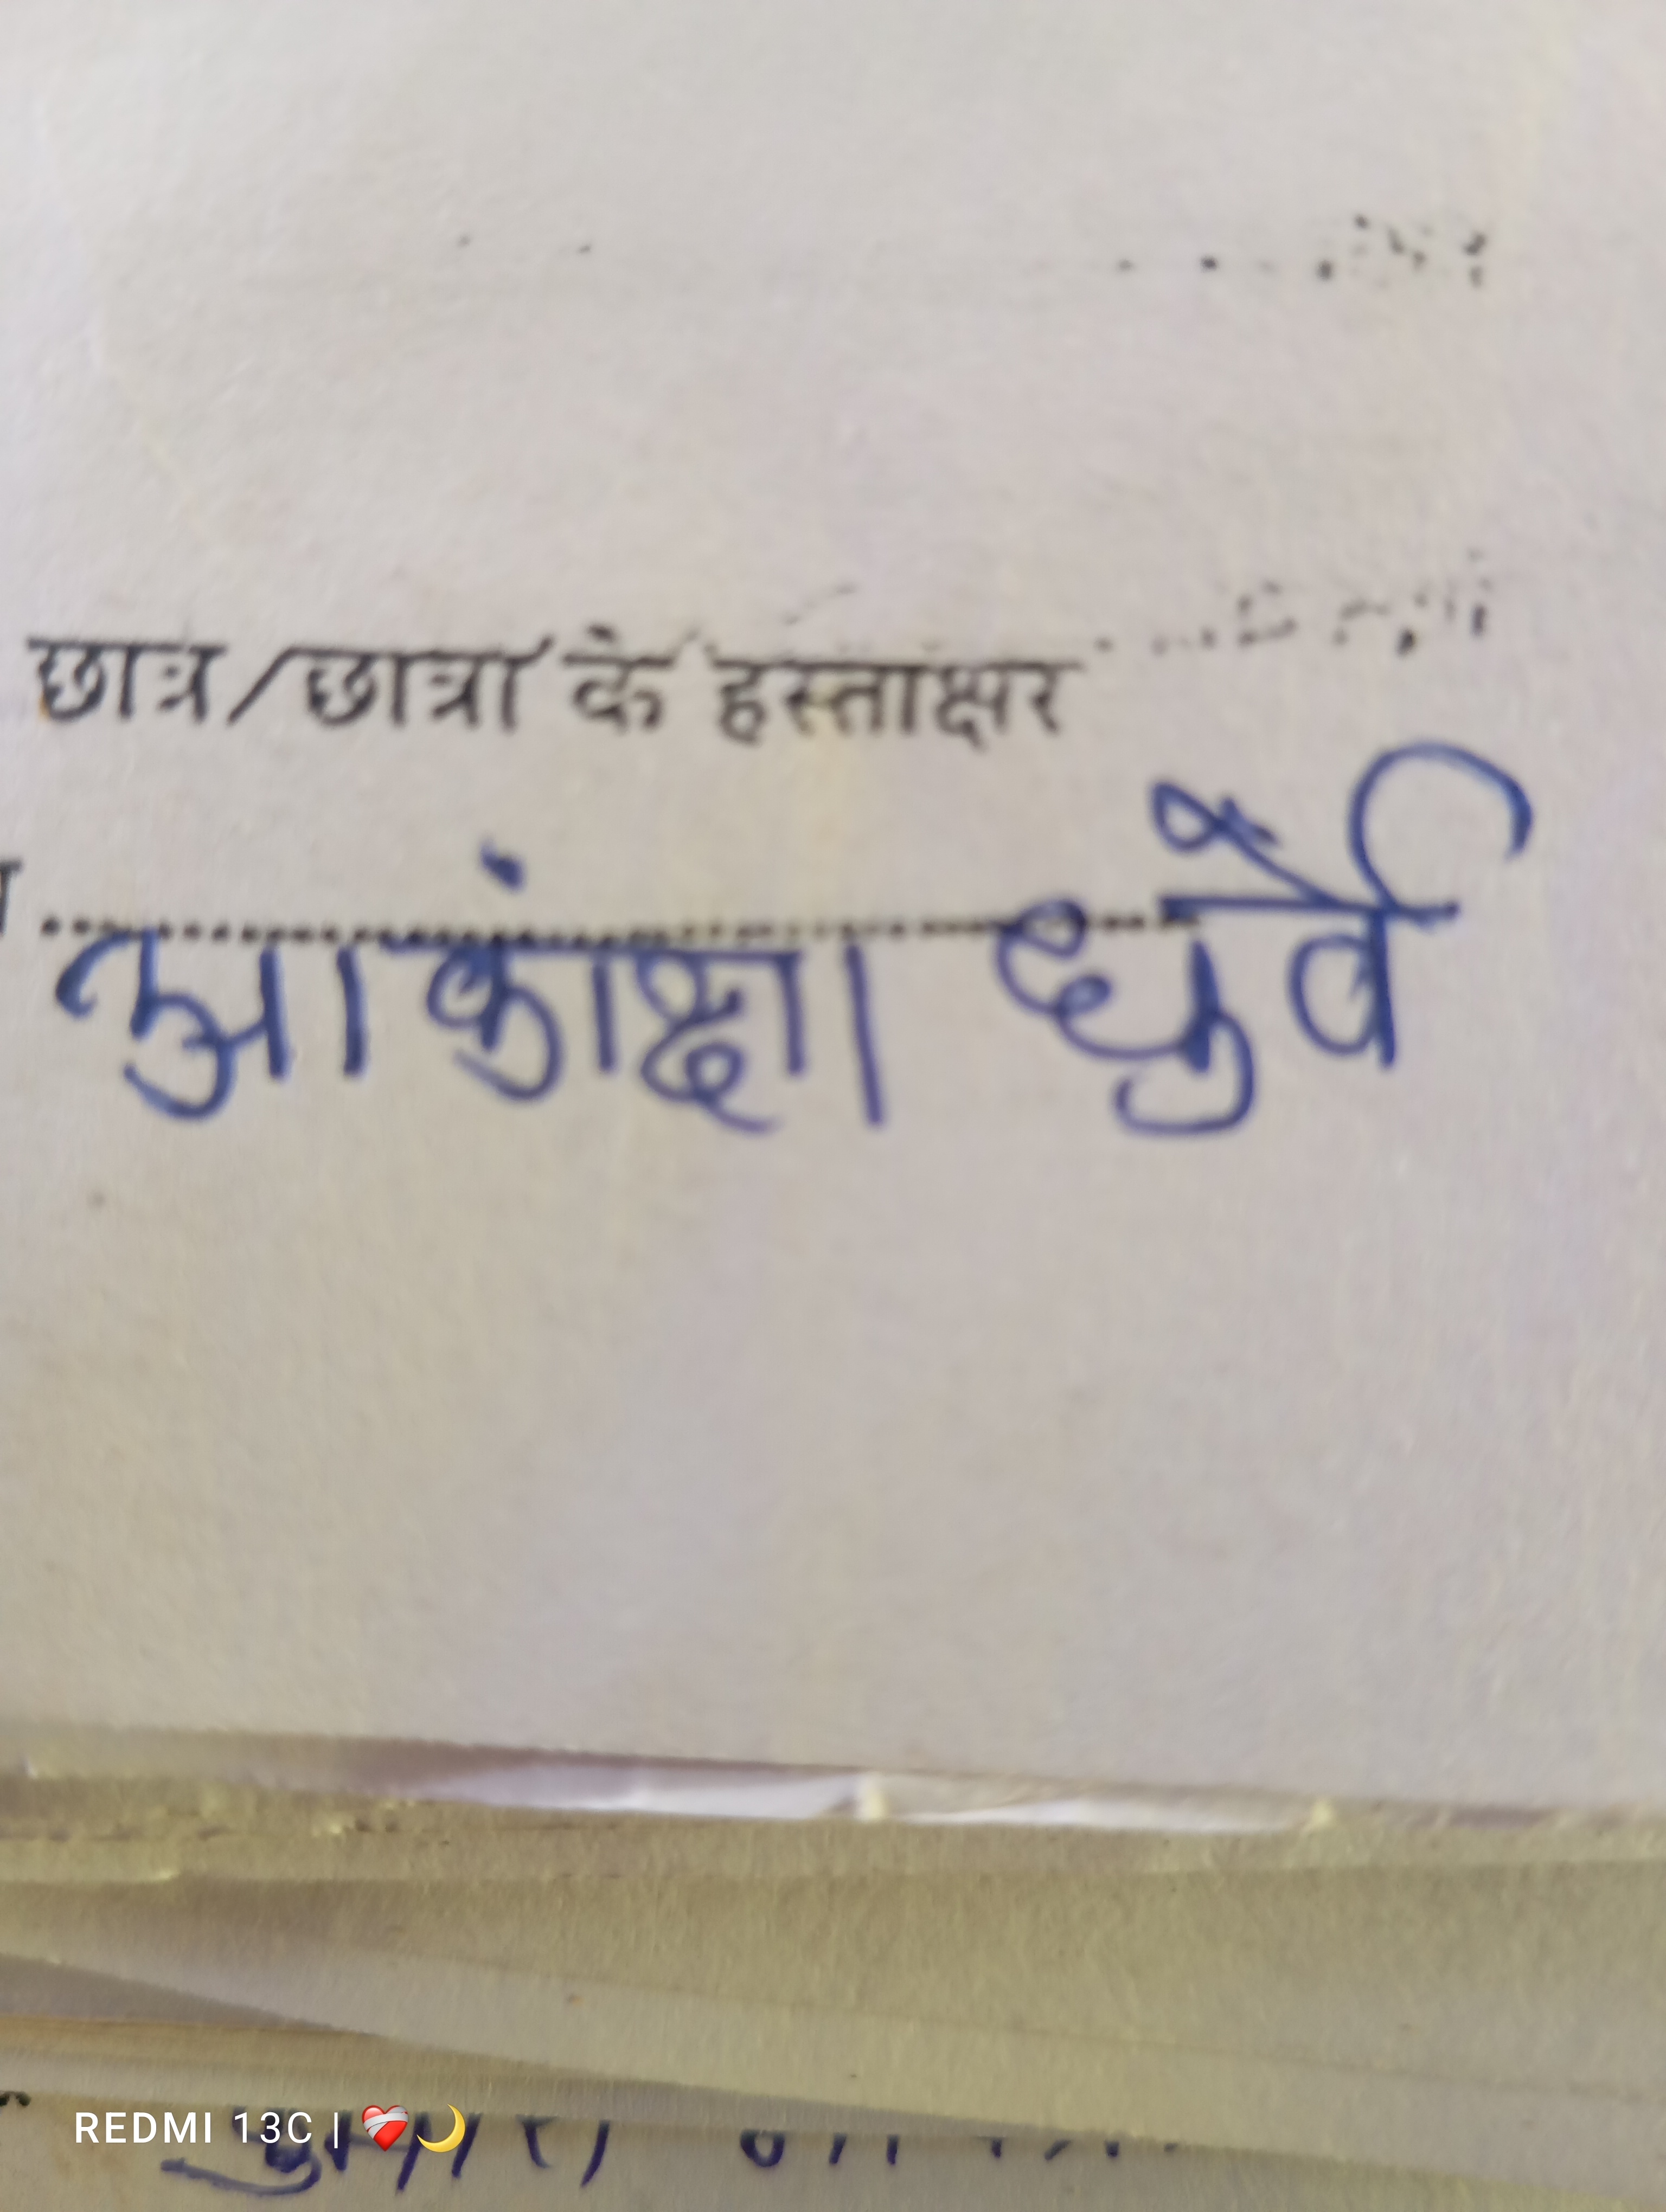 छात्र/छात्रा के हस्ताक्षर
आकांक्षा धुर्वे
REDMI 13C | ❤️‍🩹🌙